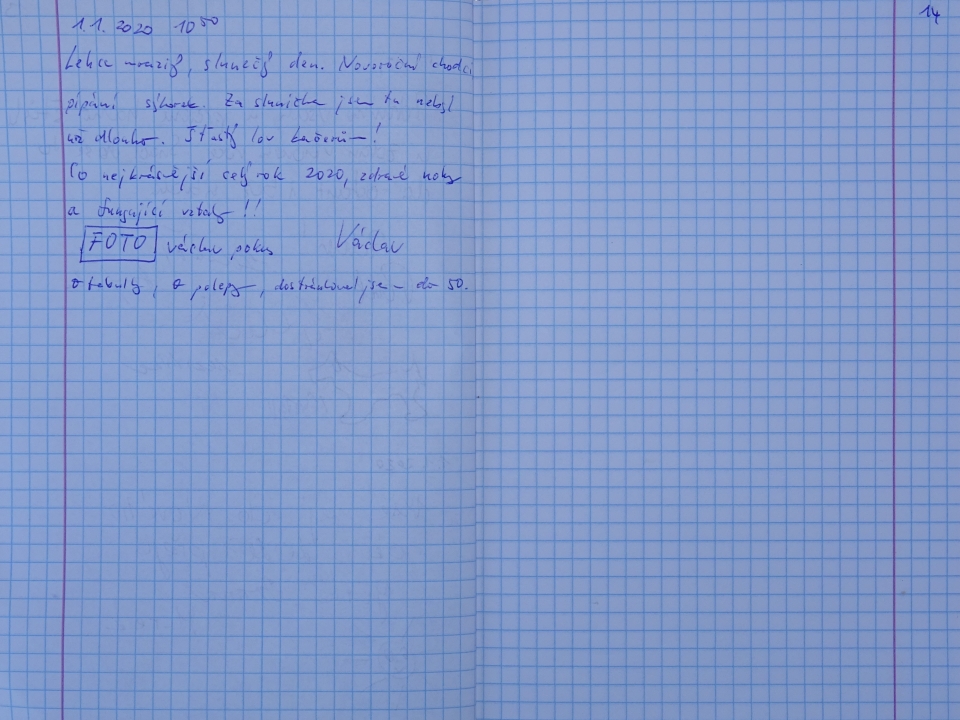 14
1.1. 2020 10⁵⁰
Lehce mrazivý, slunečný den. Novoroční chodci
pípání sýkorek. Za sluníčka jsem tu nebyl
už dlouho. Šťastný lov kačerům!
Co nejkrásnější celý rok 2020, zdravé nohy
a fungující vztahy!!
FOTO všichni Václav
o tabulky, o polepy, dostránkoval jsem do 50.